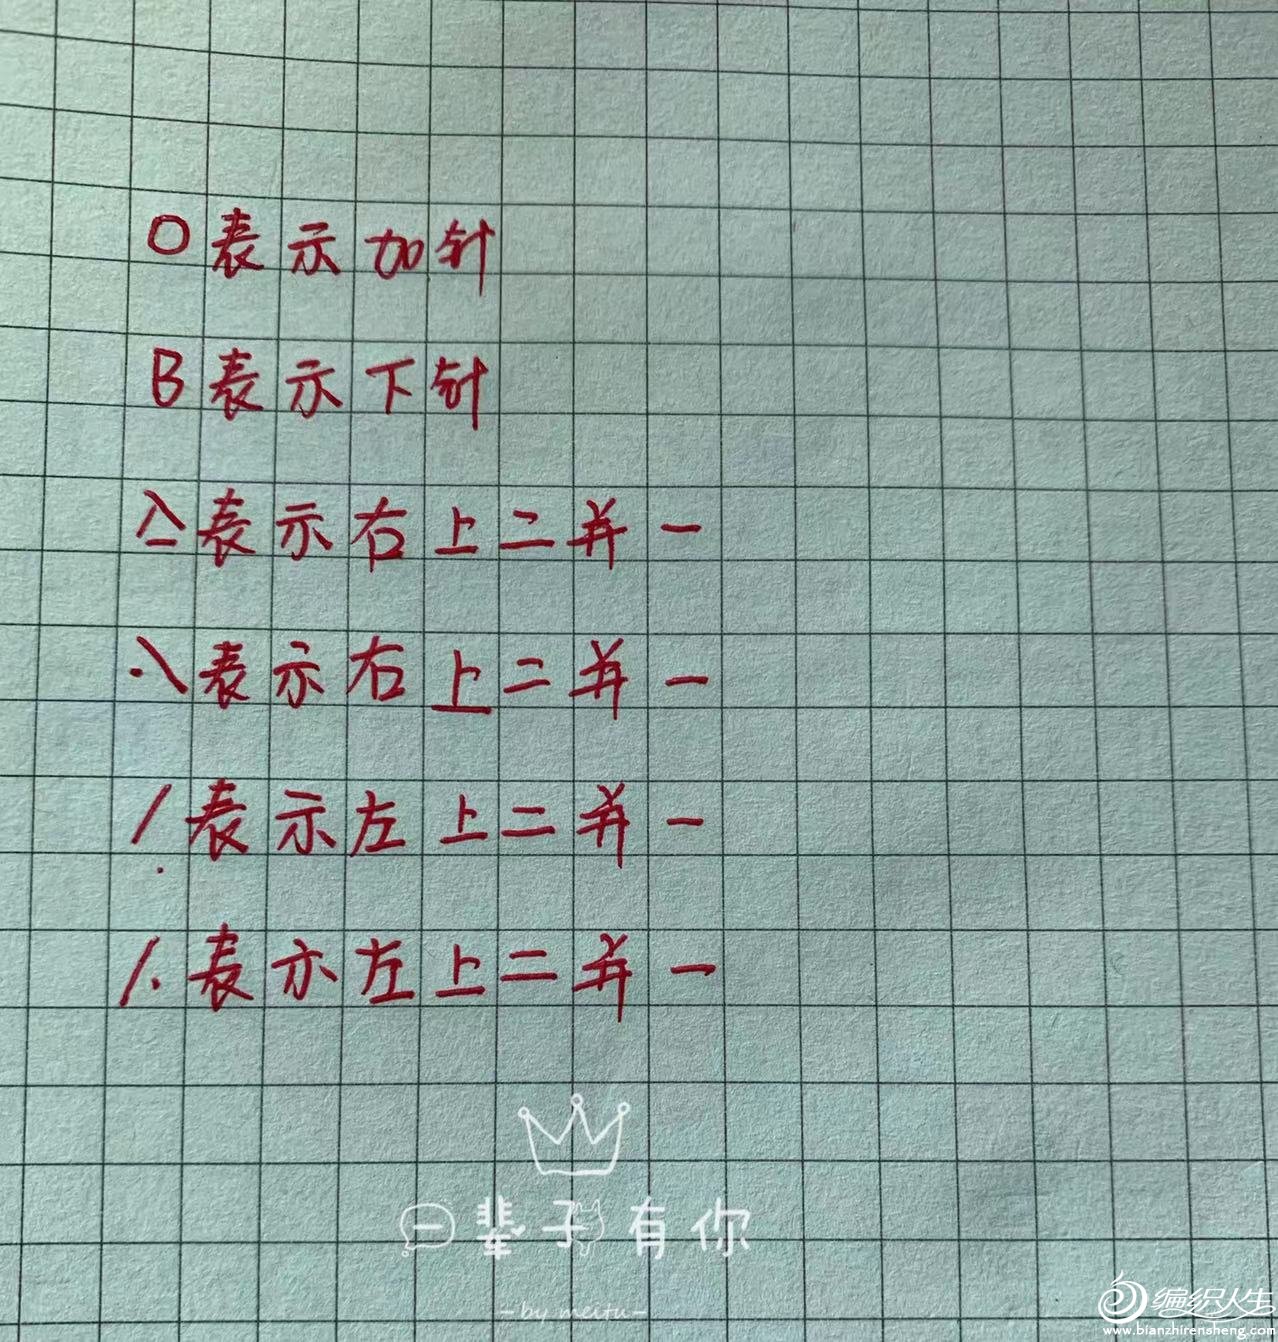 O表示加针
B表示下针
入表示右上二并一
八表示右上二并一
/表示左上二并一
/.表示左上二并一
一辈子有你
-by meitu-
编织人生
www.bianzhirensheng.com